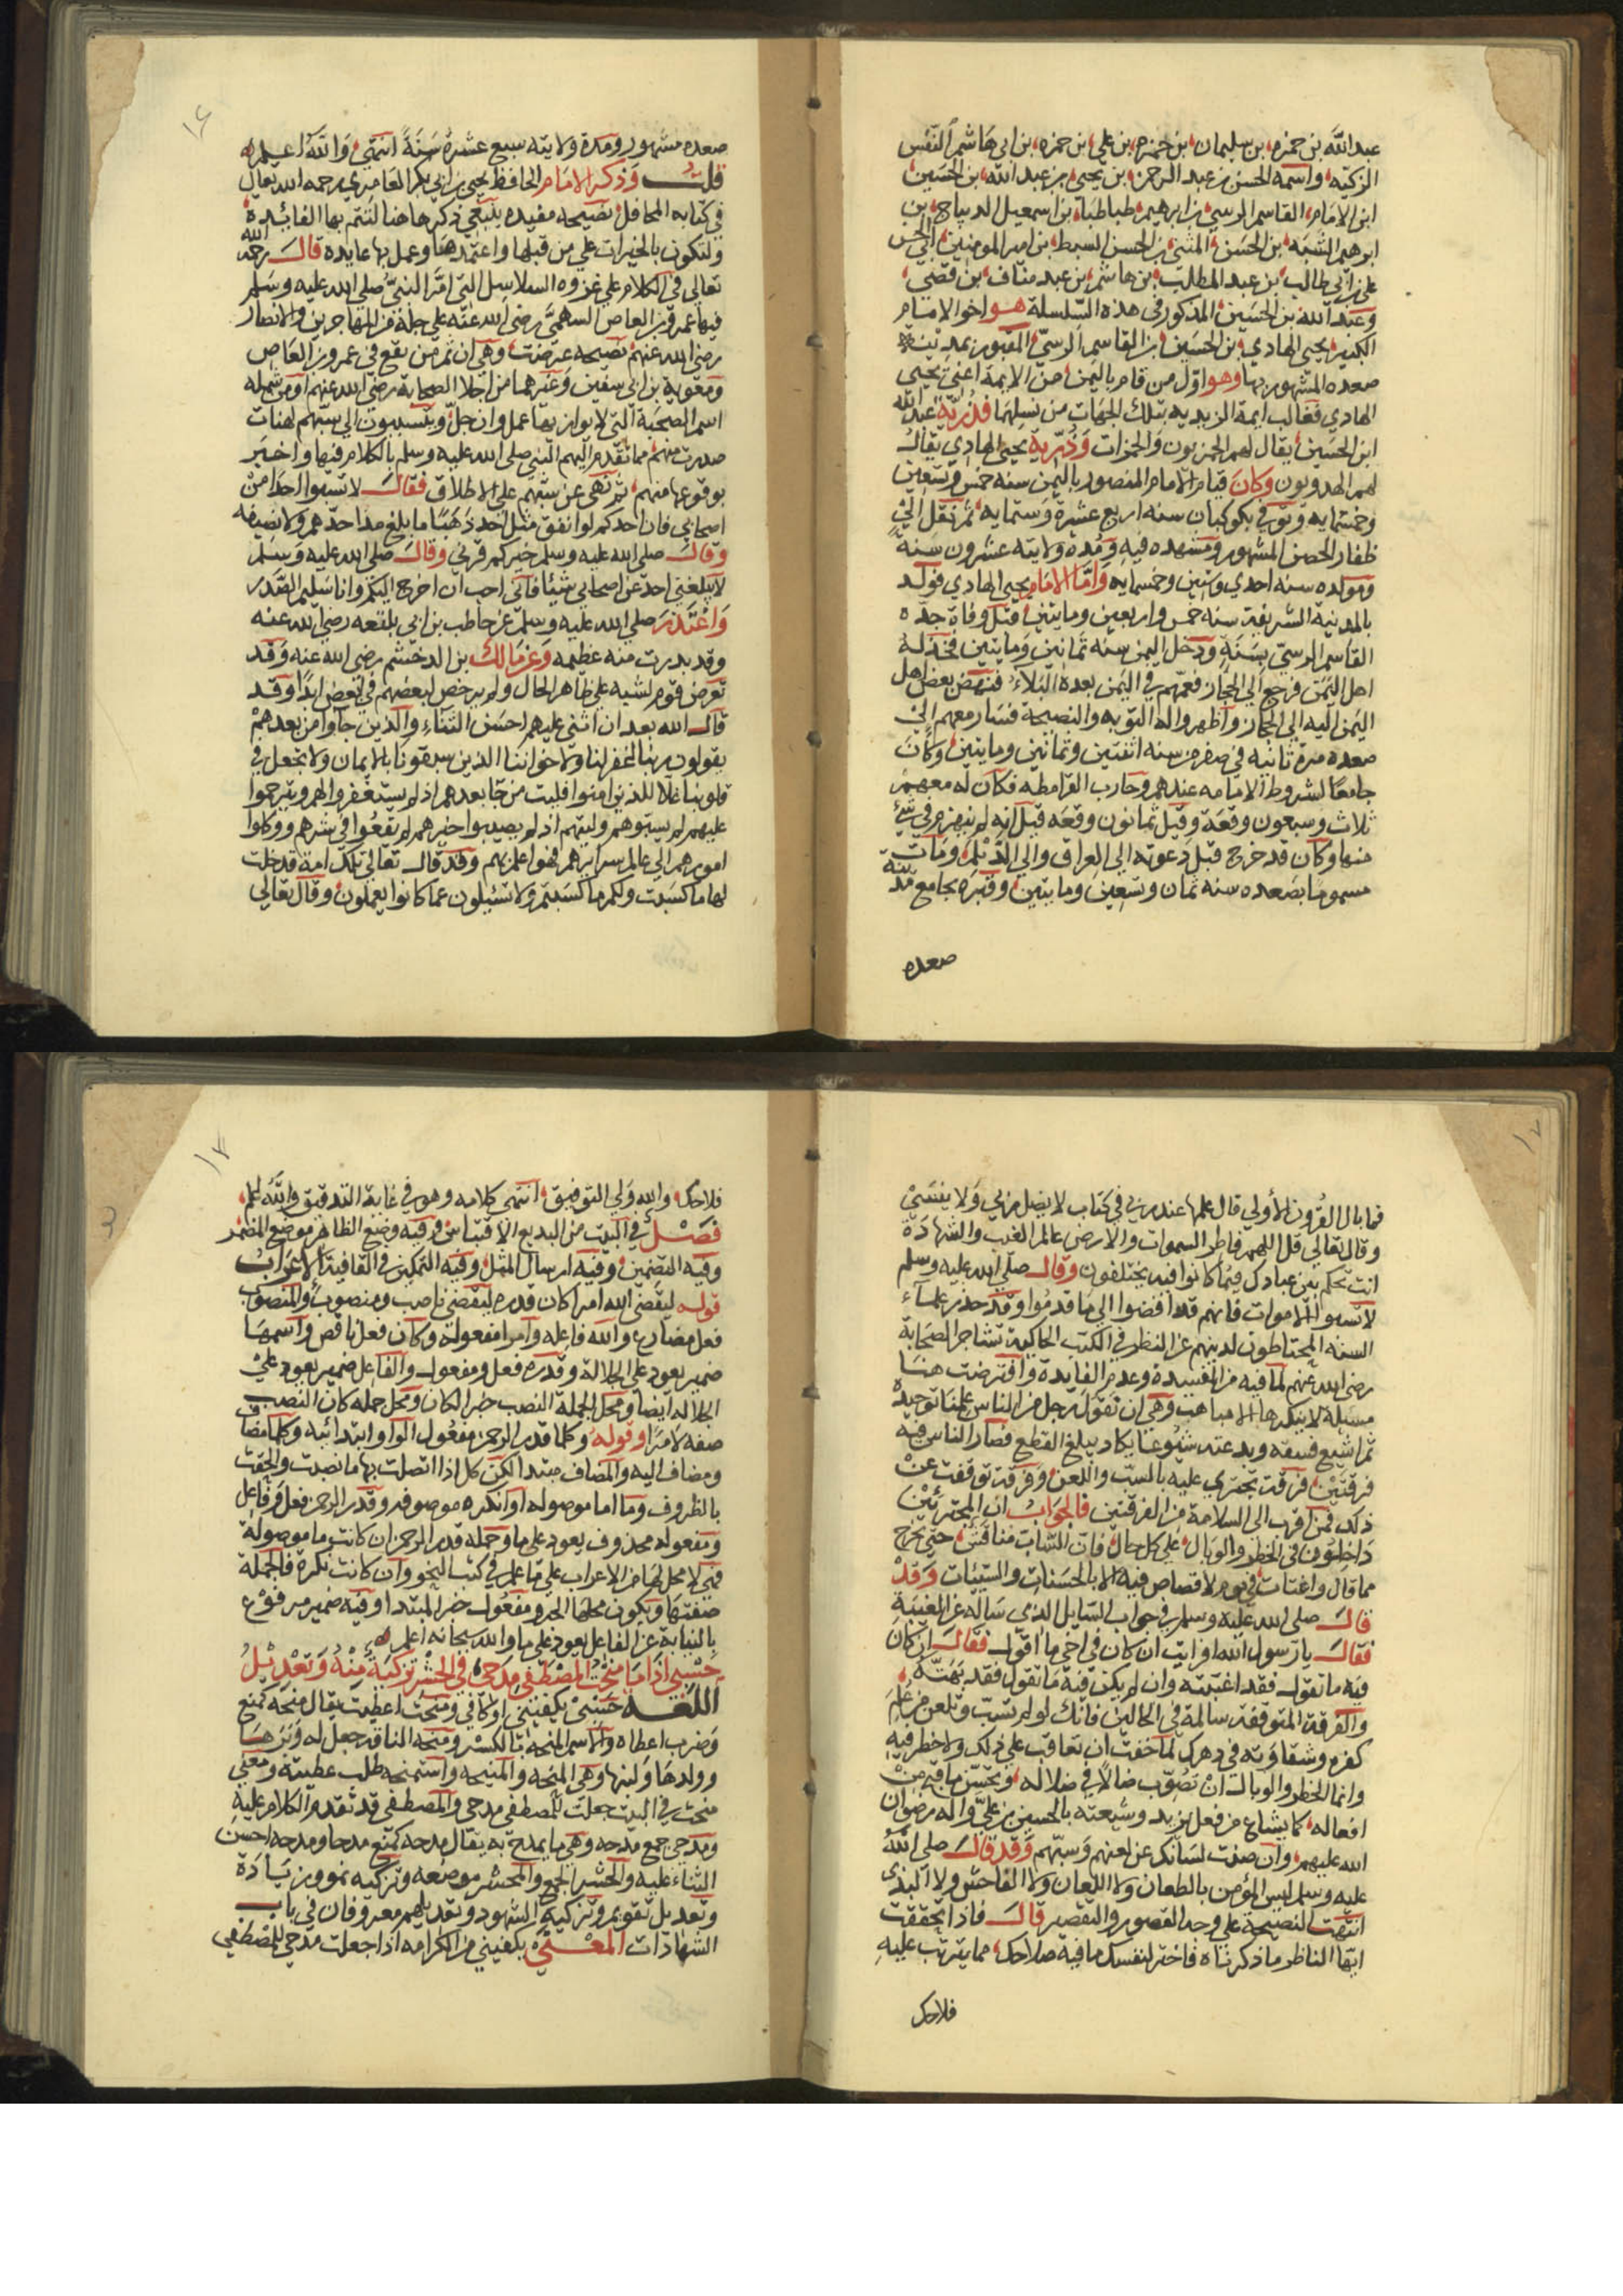 عبد الله بن حمزه بن سليمان بن حمزه بن علي بن حمزه بن ابي هاشم النفس
الزكيه واسمه الحسن بن عبد الرحمن بن يحيى بن عبد الله بن الحسين
ابن الامام القاسم الرسي بن ابرهيم طباطبا بن اسمعيل الديباج بن
ابرهيم الشبه بن الحسن المثنى بن الحسن السبط بن امير المومنين ابي الحسن
علي بن ابي طالب بن عبد المطلب بن هاشم بن عبد مناف بن قصي
وعبد الله بن الحسين المذكور في هذه السلسلة هو اخو الامام
الكبير يحيى الهادي بن الحسين بن القاسم الرسي المقبور بمدينة
صعده المشهور بها وهو اول من قام باليمن من الايمة اعني يحيى
الهادي فغالب ايمة الزيديه بتلك الجهات من نسلهما فذرية عبد الله
ابن الحسين يقال لهم الحمزيون والحمزات وذرية يحيى الهادي يقال
لهم الهدويون وكان قيام الامام المنصور باليمن سنه خمس وتسعين
وخمسمايه وتوفي بكوكبان سنه اربع عشرة وستمايه ثم نقل الى
ظفار الحصن المشهور ومشهده فيه ومدة ولايته عشرون سنة
ومولده سنه احدي وستين وخمسمايه واما الامام يحيى الهادي فولد
بالمدينة الشريفة سنه خمس واربعين ومايتين قبل وفاة جده
القاسم الرسي بسنة ودخل اليمن سنه ثمانين ومايتين فخذله
اهل اليمن فرجع الى الحجاز فعمهم في اليمن بعده البلاء فنهض بعض اهل
اليمن اليه الى الحجاز واظهروا له التوبه والنصيحة فسار معهم الى
صعده مرة ثانيه في صفر من سنه اثنتين وثمانين ومايتين وكان
جامعا لشروط الامامه عندهم وحارب القرامطه فكان له معهم
ثلاث وسبعون وقعة وقيل ثمانون وقعه قيل انه لم ينهزم في شي
منها وكان قد خرج قبل دعوته الى العراق والي الديلم ومات
مسموما بصعده سنه ثمان وتسعين ومايتين وقبره بجامع مدينة
صعده
صعده مشهور ومدة ولايته سبع عشرة سنة انتهى والله اعلم
قلت وذكر الامام الحافظ يحيى بن ابي بكر العامري رحمه الله تعالى
في كتابه المحافل نصيحه مفيده ينبغي ذكرها هنا لتتم بها الفائدة
ولتكون بالخيرات على من قبلها واعتمدها وعمل بها عايدة قال رحمه الله
تعالى في الكلام على غزوه السلاسل التي امر النبي صلى الله عليه وسلم
فيها عمرو بن العاص السهمي رضي الله عنه على جملة من المهاجرين والانصار
رضي الله عنهم نصيحه عرضت وهي ان ثم من يقع في عمرو بن العاص
ومعوية بن ابي سفين وغيرهما من اجلا الصحابة رضي الله عنهم او من شمله
اسم الصحبة التي لا يوازيها عمل وان جل ويتسببون الى سبهم لهنات
صدرت منهم مما تقدم اليهم النبي صلى الله عليه وسلم بالكلام فيها واخبر
بوقوعها منهم ثم نهى عن سبهم على الاطلاق فقال لا تسبوا احدا من
اصحابي فان احدكم لو انفق مثل احد ذهبا ما بلغ مد احدهم ولا نصيفه
وقال صلى الله عليه وسلم خيركم قرني وقال صلى الله عليه وسلم
لا يبلغني احد عن اصحابي شيئا فاني احب ان اخرج اليكم وانا سليم الصدر
واعتذر صلى الله عليه وسلم عن حاطب بن ابي بلتعه رضي الله عنه
وقد بدرت منه عظيمه وعن مالك بن الدخشم رضي الله عنه وقد
تعرض قوم لسبه على ظاهر الحال ولم يرخص لبعضهم في بعض ابدا وقد
قال الله بعد ان اثنى عليهم احسن الثناء والذين جاوا من بعدهم
يقولون ربنا اغفر لنا ولاخواننا الذين سبقونا بالايمان ولا تجعل في
قلوبنا غلا للذين امنوا فليت من جا بعدهم اذ لم يستغفروا لهم ويترحموا
عليهم لم يسبوهم وليتهم اذ لم يصيبوا خيرهم لم يقعوا في شرهم ووكلوا
امورهم الى عالم سرايرهم فهو اعلم بهم وقد قال تعالى تلك امة قد خلت
لها ما كسبت ولكم ما كسبتم ولا تسئلون عما كانوا يعملون وقال تعالى
فما بال القرون الأولى قال علمها عند ربي في كتاب لا يضل ربي ولا ينسى
وقال تعالى قل اللهم فاطر السموات والارض عالم الغيب والشهادة
انت تحكم بين عبادك فيما كانوا فيه يختلفون وقال صلى الله عليه وسلم
لا تسبوا الاموات فانهم قد افضوا الى ما قدموا وقد حذر علماء
السنه المحتاطون لدينهم عن النظر في الكتب الحاكية تشاجر الصحابة
رضي الله عنهم لما فيه من المفسدة وعدم الفايدة وافترضت هنا
مسئلة لا ينكرها الا مباهت وهي ان نقول رجل من الناس علمنا توحيده
ثم اشيع فسقه وبدعته شيوعا يكاد يبلغ القطع فصار الناس فيه
فرقتين فرقت تجتري عليه بالسب واللعن وفرقة توقفت عن
ذلك فمن اقرب الى السلامة من الفرقتين فالجواب ان المجترئين
داخلون في الخطر والوبال على كل حال فان الساب مناقش حتى يخرج
مما قال واغتاب في يوم لا قصاص فيه الا بالحسنات والسيئات وقد
قال صلى الله عليه وسلم في جواب السايل الذي ساله عن الغيبة
فقال يا رسول الله افرايت ان كان في اخي ما اقول فقال ان كان
فيه ما تقول فقد اغتبته وان لم يكن فيه ما تقول فقد بهته
والفرقة المتوقفة سالمة في الحالين فانك لو لم تسب وتلعن من علم
كفره وشقاوته في دهرك لما خفت ان تعاقب على ذلك ولا خطر فيه
وانما الخطر والوبال ان تصوب ضالا في ضلاله وتحسن ما قبح من
افعاله كما يشاع من فعل يزيد وشيعته بالحسين بن علي واله رضوان
الله عليهم وان صنت لسانك عن لعنهم وسبهم وقد قال صلى الله
عليه وسلم ليس المؤمن بالطعان ولا اللعان ولا الفاحش ولا البذي
انتهت النصيحة على وجه القصور والتقصير قال فاذا تحققت
ايها الناظر ما ذكرناه فاختر لنفسك ما فيه صلاحك مما يترتب عليه
فلاحك
فلاحك والله ولي التوفيق انتهى كلامه وهو في غاية التدقيق والله اعلم
فصل في البيت من البديع الاقتباس وفيه وضع الظاهر موضع المضمر
وفيه التضمين وفيه ارسال المثل وفيه التمكين في القافية الاعراب
قوله ليقضي الله امرا كان قدره ليقضي ناصب ومنصوب والمنصوب
فعل مضارع والله فاعله وامرا مفعوله وكان فعل ناقص واسمها
ضمير يعود على الجلالة وقدره فعل ومفعول والفاعل ضمير يعود على
الجلاله ايضا ومحل الجملة النصب خبر لكان ومحل جمله كان النصب
صفه لامرا وقوله وكلما قدر الرحمن مفعول الواو ابتدائيه وكلما مضاف
ومضاف اليه والمضاف مبتدا لكن كل اذا اتصلت بها ما نصبت والحقت
بالظروف وما اما موصوله او نكره موصوفه وقدر الرحمن فعل وفاعل
ومفعوله محذوف يعود على ما وجمله قدر الرحمن ان كانت ما موصولة
فهي لا محل لها من الاعراب على ما علم في كتب النحو وان كانت نكرة فالجملة
صفتها ويكون محلها الجر ومفعول خبر المبتدا وفيه ضمير مرفوع
بالنيابة عن الفاعل يعود على ما والله سبحانه اعلم
حسبي اذا ما منحت المصطفى مدحي في الحشر تزكية منه وتعديل
اللغه حسبي يكفيني او كافي ومنحت اعطيت يقال منحه كمنع
وضرب اعطاه والاسم المنحة بالكسر ومنحه الناقه جعل له وبرها
وولدها ولبنها وهي المنحه والمنيحه واستمنحه طلب عطيته ومعنى
منحت في البيت جعلت للمصطفى مدحي والمصطفى قد تقدم الكلام عليه
ومدحي جمع مدحه وهي ما يمدح به يقال مدحه كمنع مدحا ومدحه احسن
الثناء عليه والحشر الجمع والمحشر موضعه وتزكيه نمو وزيادة
وتعديل تقويم وتزكيه الشهود وتعديلهم معروفان في باب
الشهادات المعنى يكفيني من الكرامه اذا جعلت مدحي للمصطفى